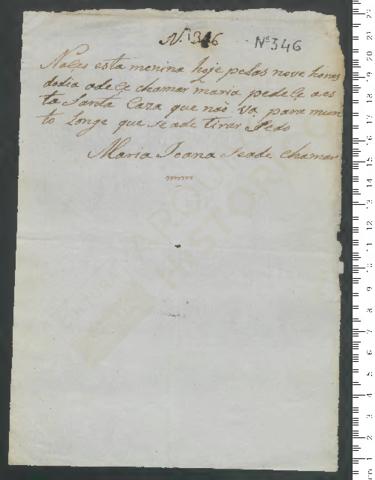 N. 346 Nº 346
Naçeo esta menina hoje pelas nove horas
dodia adeçe chamar maria pedeçe aes
ta Santa Caza que não va para muin
to Longe que seade tirar sedo
Maria Joana seade chamar